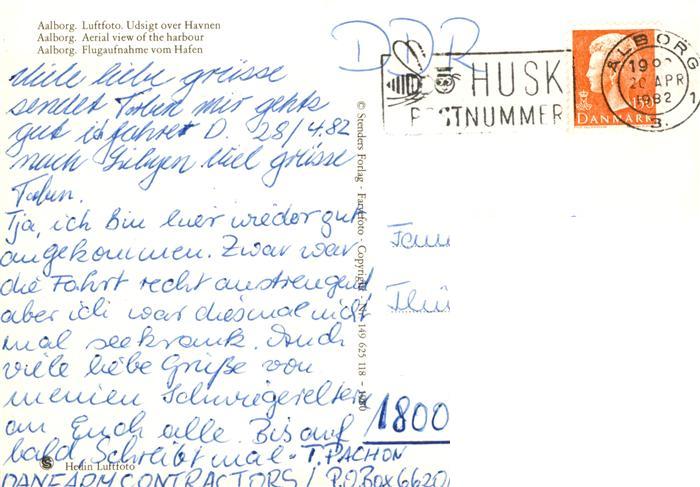 Aalborg. Luftfoto. Udsigt over Havnen
Aalborg. Aerial view of the harbour
Aalborg. Flugaufnahme vom Hafen
DDR
HUSK
POSTNUMMER
AALBORG
20 APR
1982
DANMARK
Viele liebe grüsse
sendet Torben mir gehts
gut ich fahret D. 28/4.82
nach Libyen viel grüsse
Torben.
Tja, ich bin hier wieder gut
angekommen. Zwar war
die Fahrt recht anstrengend
aber ich war diesmal nicht
mal seekrank. Auch
viele liebe Grüße von
meinen Schwiegereltern
an Euch alle. Bis auf
bald, Schreibt mal - T. PACHON
DANFARM CONTRACTORS / P.O.Box 6620
Hedin Luftfoto
© Stenders Forlag - Farvefoto - Copyright
149 625 118
1800